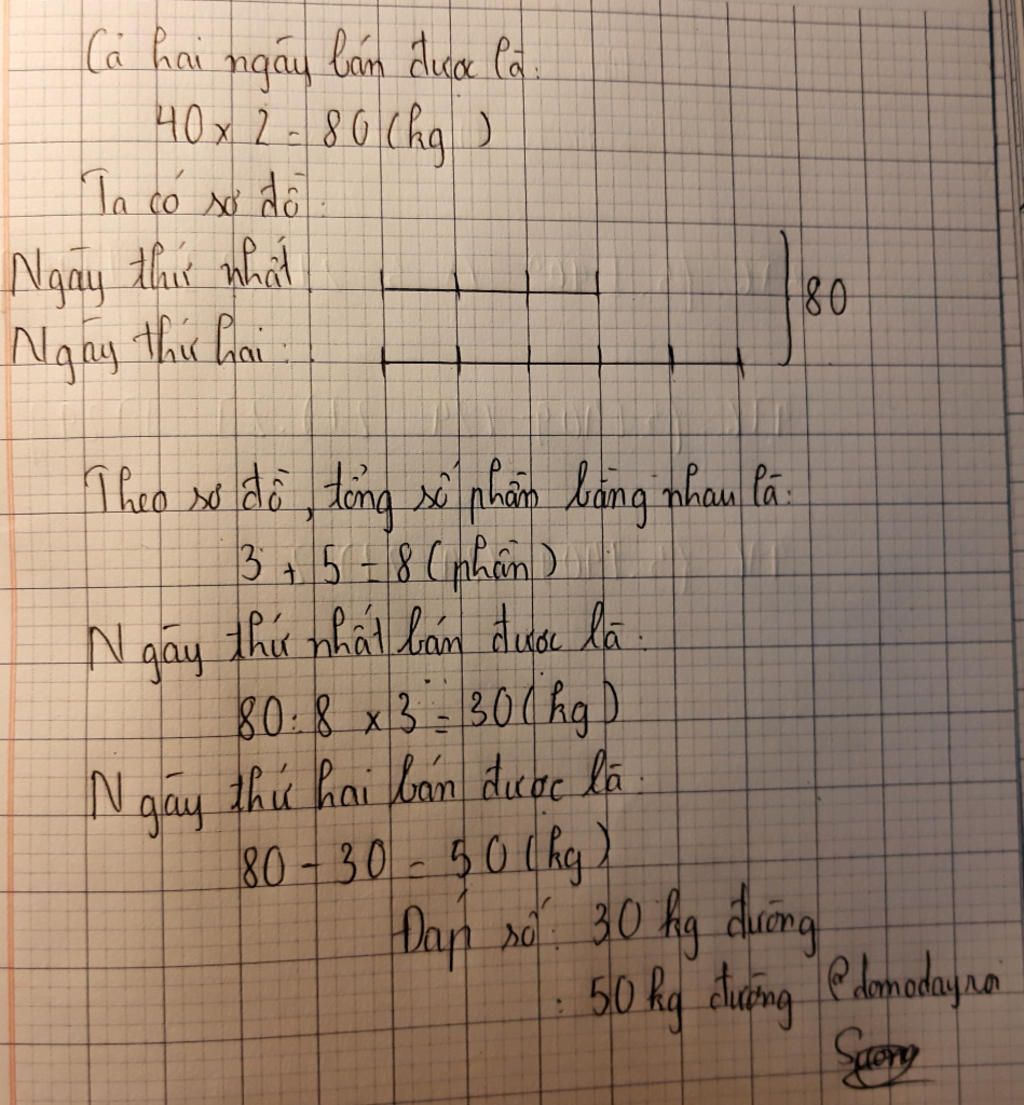 Cả hai ngày bán được là:
40 x 2 = 80 (kg)
Ta có sơ đồ:
Ngày thứ nhất
80
Ngày thứ hai:
Theo sơ đồ, tổng số phần bằng nhau là:
3 + 5 = 8 (phần)
Ngày thứ nhất bán được là:
80 : 8 x 3 = 30 (kg)
Ngày thứ hai bán được là:
80 - 30 = 50 (kg)
Đáp số: 30 kg đường
: 50 kg đường
@domodayroi